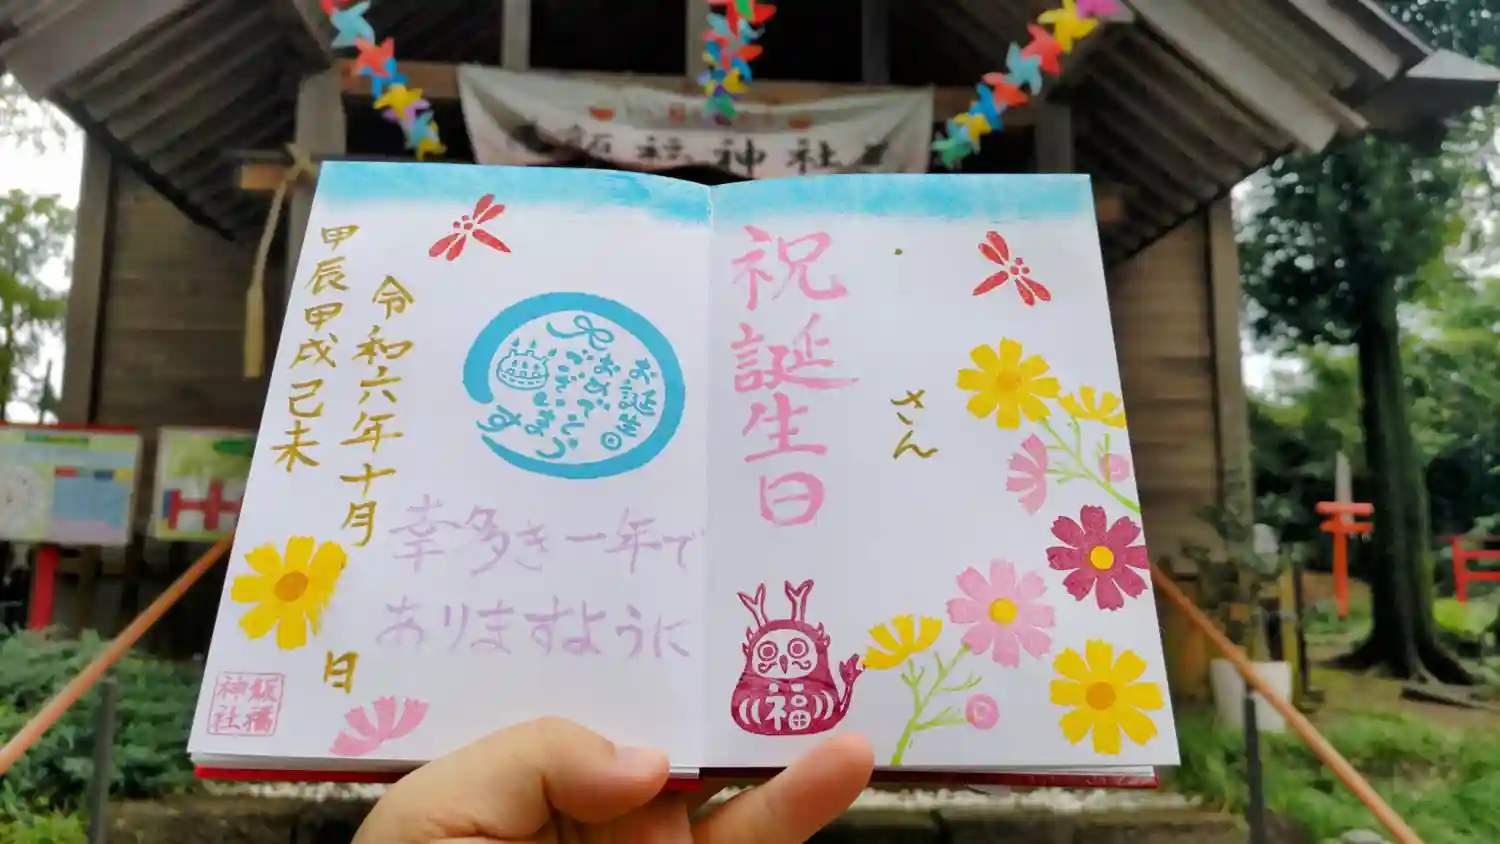 飯福神社
祝誕生日
さん
福
お誕生日
おめでとう
ございます
幸多き一年で
ありますように
令和六年十月
日
甲辰甲戌己未
飯福
神社